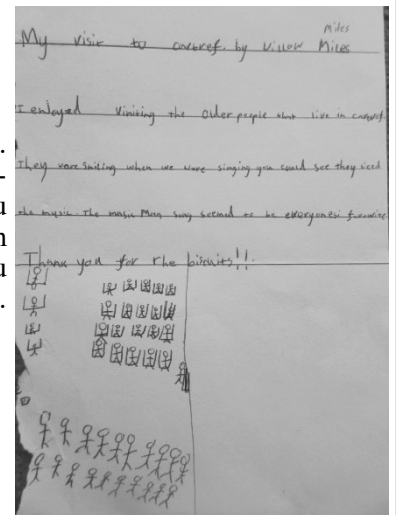 Miles
My visit to cartref. by Willow Miles
I enjoyed Visiting the Older people that live in cartref.
They were Smiling when we were singing you could see they liced
the music. The music Man song seemed to be everyones favourite
Thank you for the biscuits!!
.
-
u
n
u
.